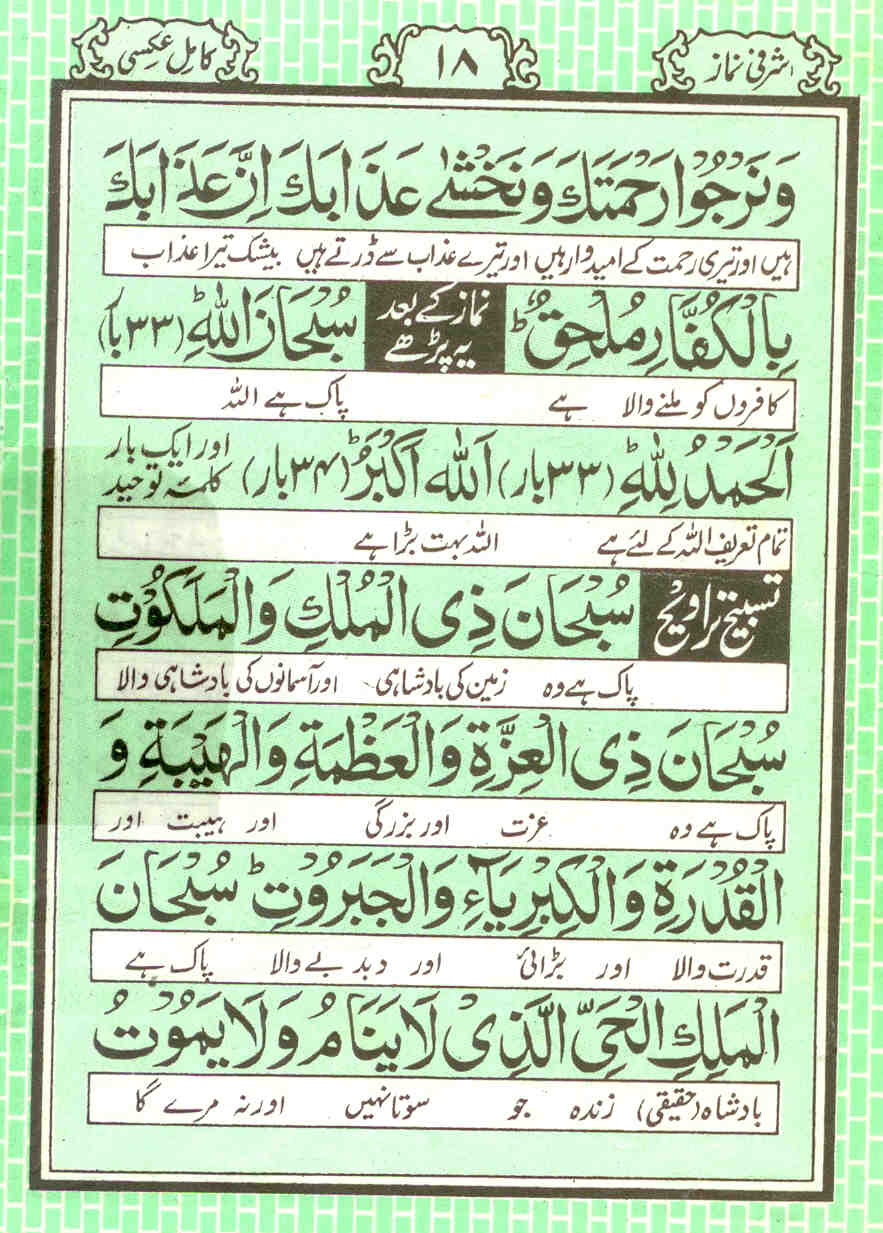 اشرفی نماز
۱۸
کامل عکسی
وَنَرْجُوْا رَحْمَتَكَ وَنَخْشٰى عَذَابَكَ اِنَّ عَذَابَكَ
ہیں اور تیری رحمت کے امیدوار ہیں اور تیرے عذاب سے ڈرتے ہیں بیشک تیرا عذاب
بِالْكُفَّارِ مُلْحِقٌ ؕ نماز کے بعد یہ پڑھے سُبْحَانَ اللّٰهِ ؕ (۳۳ بار)
کافروں کو ملنے والا ہے پاک ہے اللہ
اَلْحَمْدُ لِلّٰهِ ؕ (۳۳ بار) اَللّٰهُ اَكْبَرُ ؕ (۳۴ بار) اور ایک بار کلمئہ توحید
تمام تعریف اللہ کے لئے ہے اللہ بہت بڑا ہے
تسبیح تراویح سُبْحَانَ ذِى الْمُلْكِ وَالْمَلَكُوْتِ
پاک ہے وہ زمین کی بادشاہی اور آسمانوں کی بادشاہی والا
سُبْحَانَ ذِى الْعِزَّةِ وَالْعَظْمَةِ وَالْهَيْبَةِ وَ
پاک ہے وہ عزت اور بزرگی اور ہیبت اور
الْقُدْرَةِ وَالْكِبْرِيَآءِ وَالْجَبَرُوْتِ ؕ سُبْحَانَ
قدرت والا اور بڑائی اور دبدبے والا پاک ہے
الْمَلِكِ الْحَيِّ الَّذِىْ لَا يَنَامُ وَلَا يَمُوْتُ
بادشاہ (حقیقی) زندہ جو سوتا نہیں اور نہ مرے گا